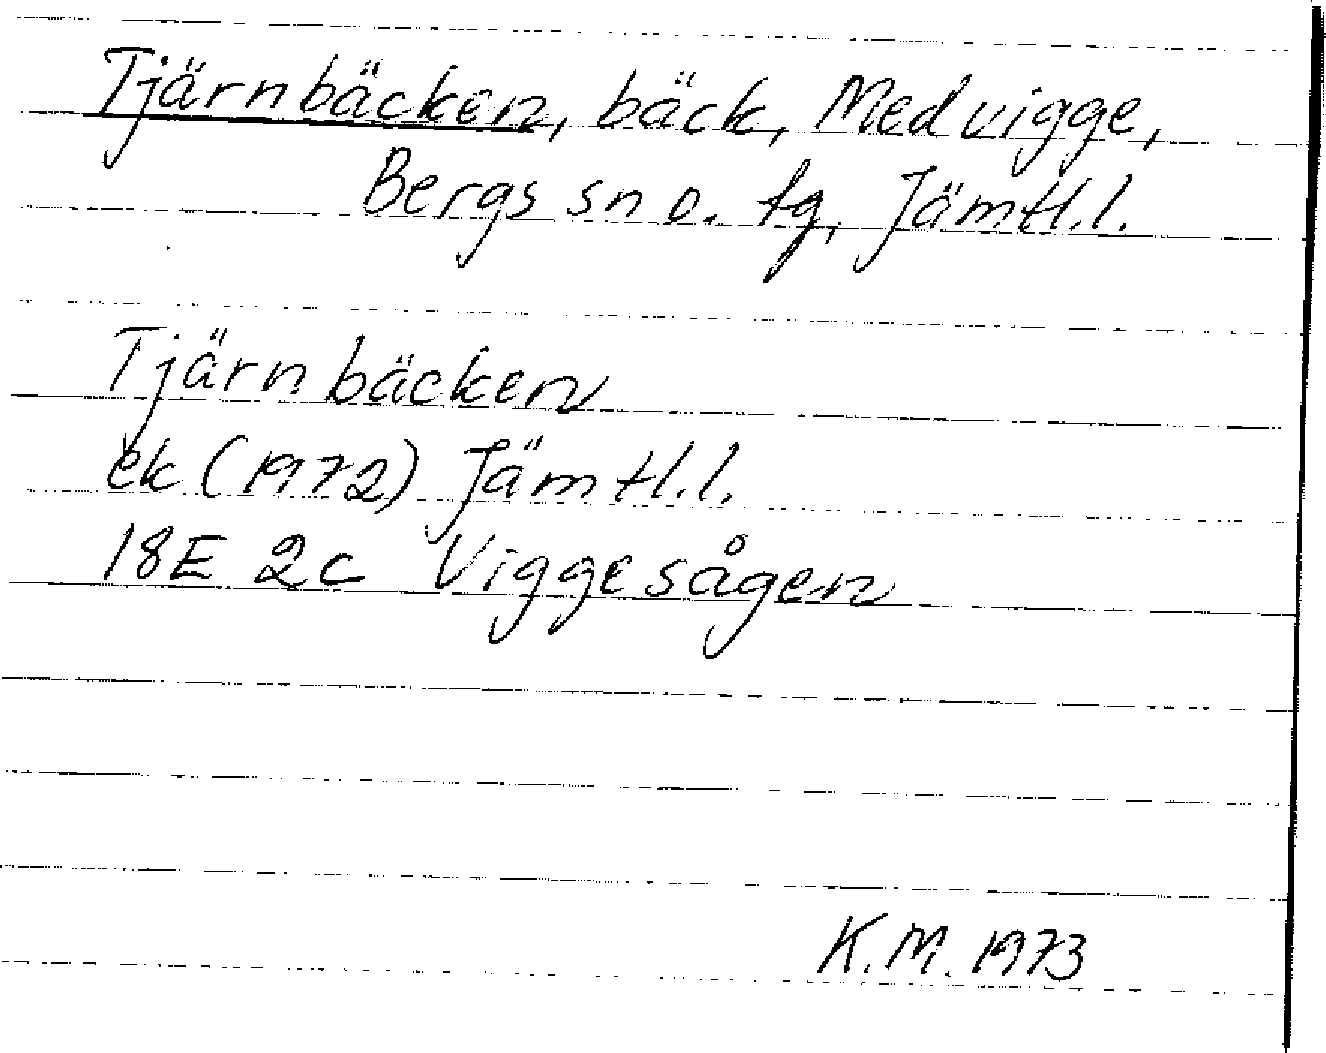 Tjärnbäcken, bäck, Medvigge,
Bergs sn o. tg, Jämtl.l.
Tjärnbäcken
ek (1972) Jämtl.l.
18E 2c Viggesågen
K.M. 1973